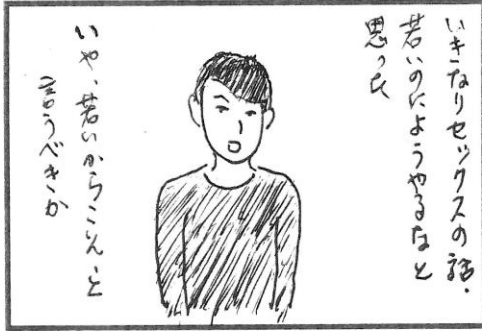 いきなりセックスの話・
若いのにようやるなと
思った
いや、若いからこん、と
言うべきか